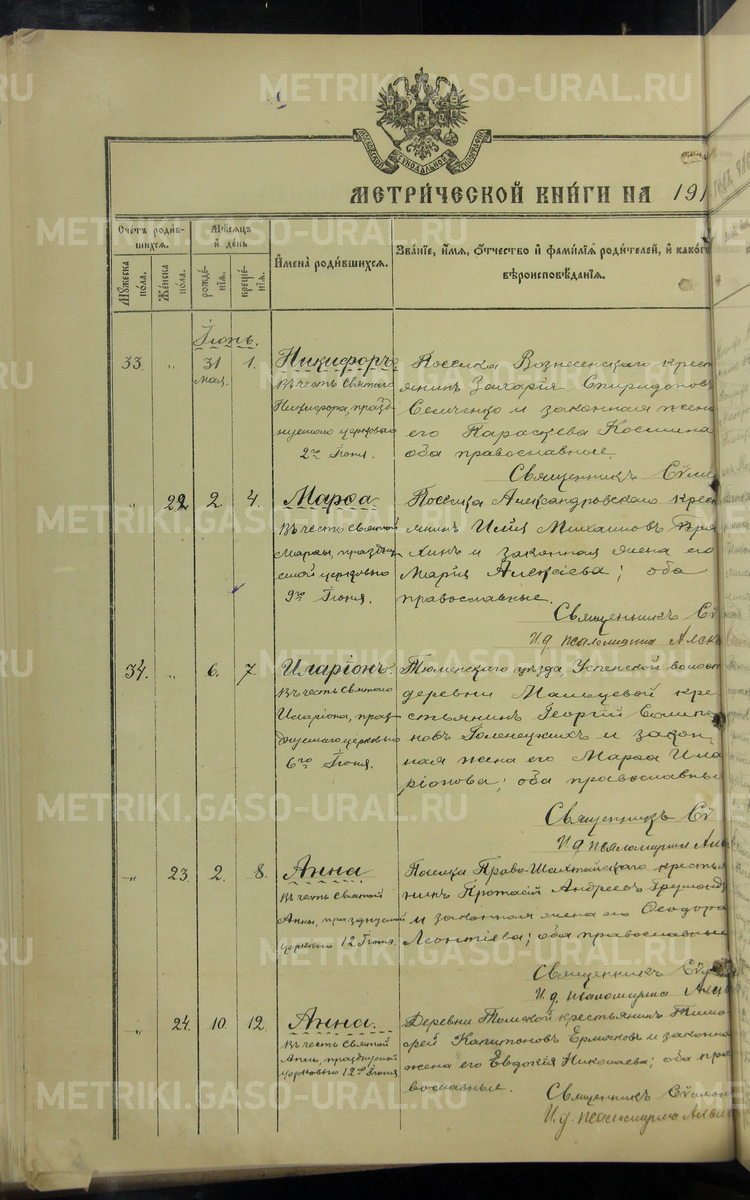 МЕТРИЧЕСКОЙ КНИГИ НА 191
Счетъ родив-
шихся.
Мужеска
пола.
Женска
пола.
Мѣсяцъ
и день
рожде-
нія.
креще-
нія.
Имена родившихся.
Званіе, имя, отчество и фамилія родителей, и какого
вѣроисповѣданія.
Іюнь.
33. " 31 мая. 1.
Никифоръ
въ честь святаго
Никифора, празд-
нуемаго церковью
2го Іюня.
Поселка Вознесенскаго крест
янинъ Захарія Спиридоновъ
и законная жена
его Параскева Космина
оба православные.
Священникъ
" 22 2. 4.
Марѳа
въ честь святой
Марѳы, праздну
емой церковью
9го Іюня.
Поселка Александровскаго крест
янинъ Илія Михаиловъ
и законная жена его
Марія Алексіева; оба
православные.
Священникъ
И.д. псаломщика
34. " 6. 7.
Иларіонъ.
въ честь святаго
Иларіона, празд-
днуемаго церковью
6го Іюня.
Тюменскаго уѣзда, Успенской волост
деревни Мальцевой кре-
стьянинъ Георгій
и закон-
ная жена его Марѳа Ила
ріонова; оба православные
Священникъ
И.д. псаломщика
" 23. 2. 8.
Анна
въ честь святой
Анны, празднуемой
церковью 12 Іюня.
Поселка крестья
нинъ Протасій Андреевъ
и законная жена его Ѳеодора
Леонтіева; оба православные
Священникъ
И.д. псаломщика
" 24. 10. 12.
Анна.
въ честь святой
Анны, празднуемой
церковью 12го Іюня
Деревни Томской крестьянинъ Тимо
ѳей Капитоновъ Ермаковъ и законна
жена его Евдокія Николаева; оба пра
вославные.
Священникъ
И.д. псаломщика
METRIKI.GASO-URAL.RU